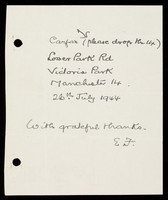 (please drop the 14)
Lower Park Rd
Victoria Park
Manchester 14.
26th July 1944
With grateful thanks.
E.F.